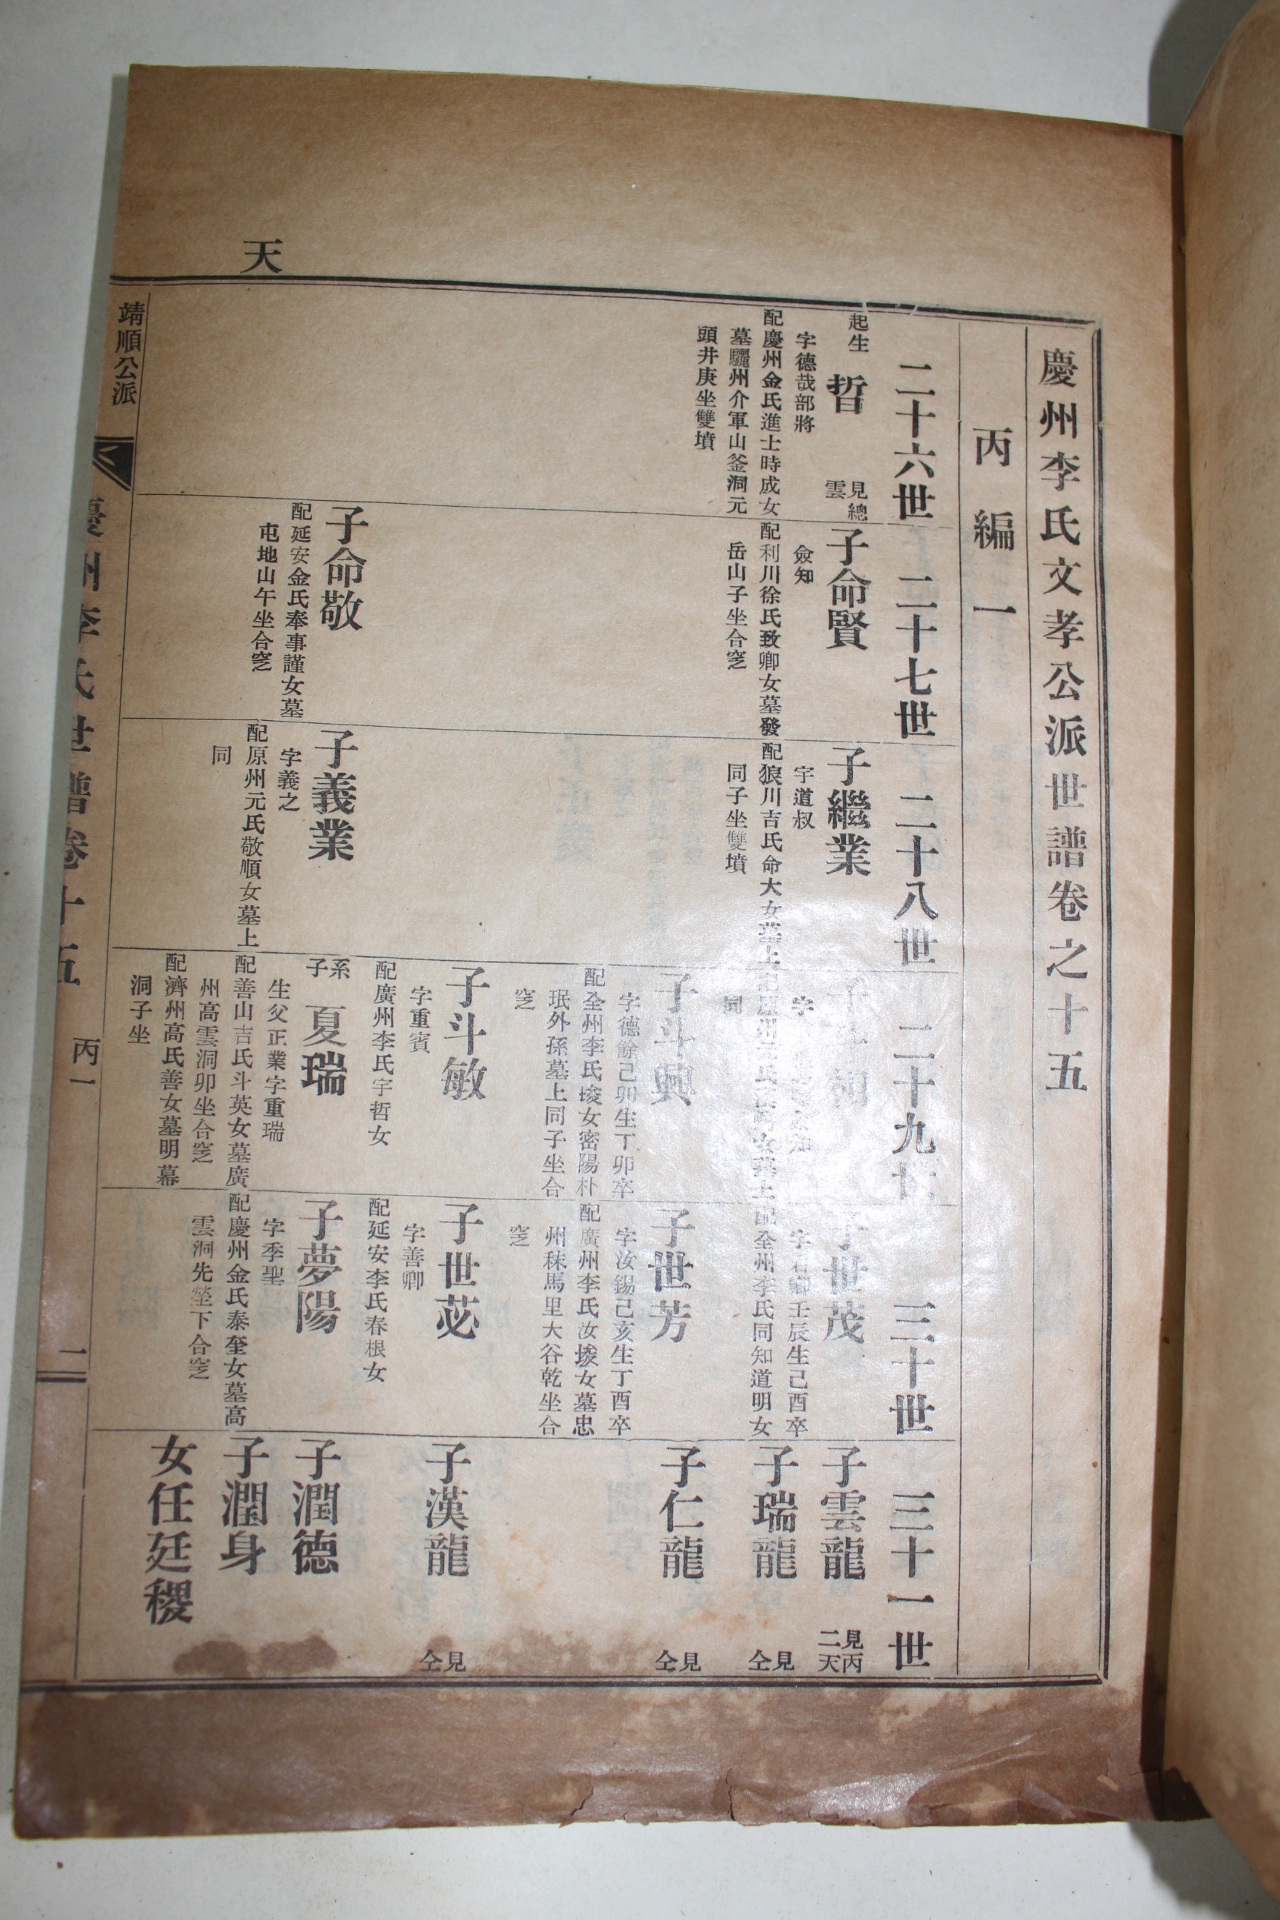 慶州李氏文孝公派世譜卷之十五
丙編一
二十六世
二十七世
二十八世
二十九
三十世
三十一世
起生
晢
見總
雲
字德哉部將
配慶州金氏進士時成女
墓驪州介軍山釜洞元
頭井庚坐雙墳
子命賢
僉知
配利川徐氏致卿女墓發
岳山子坐合窆
子命敬
配延安金氏奉事謹女墓
屯地山午坐合窆
子繼業
字道叔
配狼川吉氏命大女墓上
同子坐雙墳
子義業
字義之
配原州元氏敬順女墓上
同
字
同
子斗興
字德餘己卯生丁卯卒
配全州李氏埈女密陽朴
珉外孫墓上同子坐合
窆
子斗敏
字重賓
配廣州李氏宇哲女
系子
夏瑞
生父正業字重瑞
配善山吉氏斗英女墓廣
州高雲洞卯坐合窆
配濟州高氏善女墓明幕
洞子坐
子世茂
卿壬辰生己酉卒
配全州李氏同知道明女
子世芳
字汝錫己亥生丁酉卒
配廣州李氏汝埈女墓忠
州秣馬里大谷乾坐合
窆
子世苾
字善卿
配延安李氏春根女
子夢陽
字季聖
配慶州金氏泰奎女墓高
雲洞先塋下合窆
子雲龍
見丙
二天
子瑞龍
見仝
子仁龍
見仝
子漢龍
見仝
子潤德
子潤身
女任廷稷
天
靖順公派
慶州李氏世譜卷十五
丙一
二